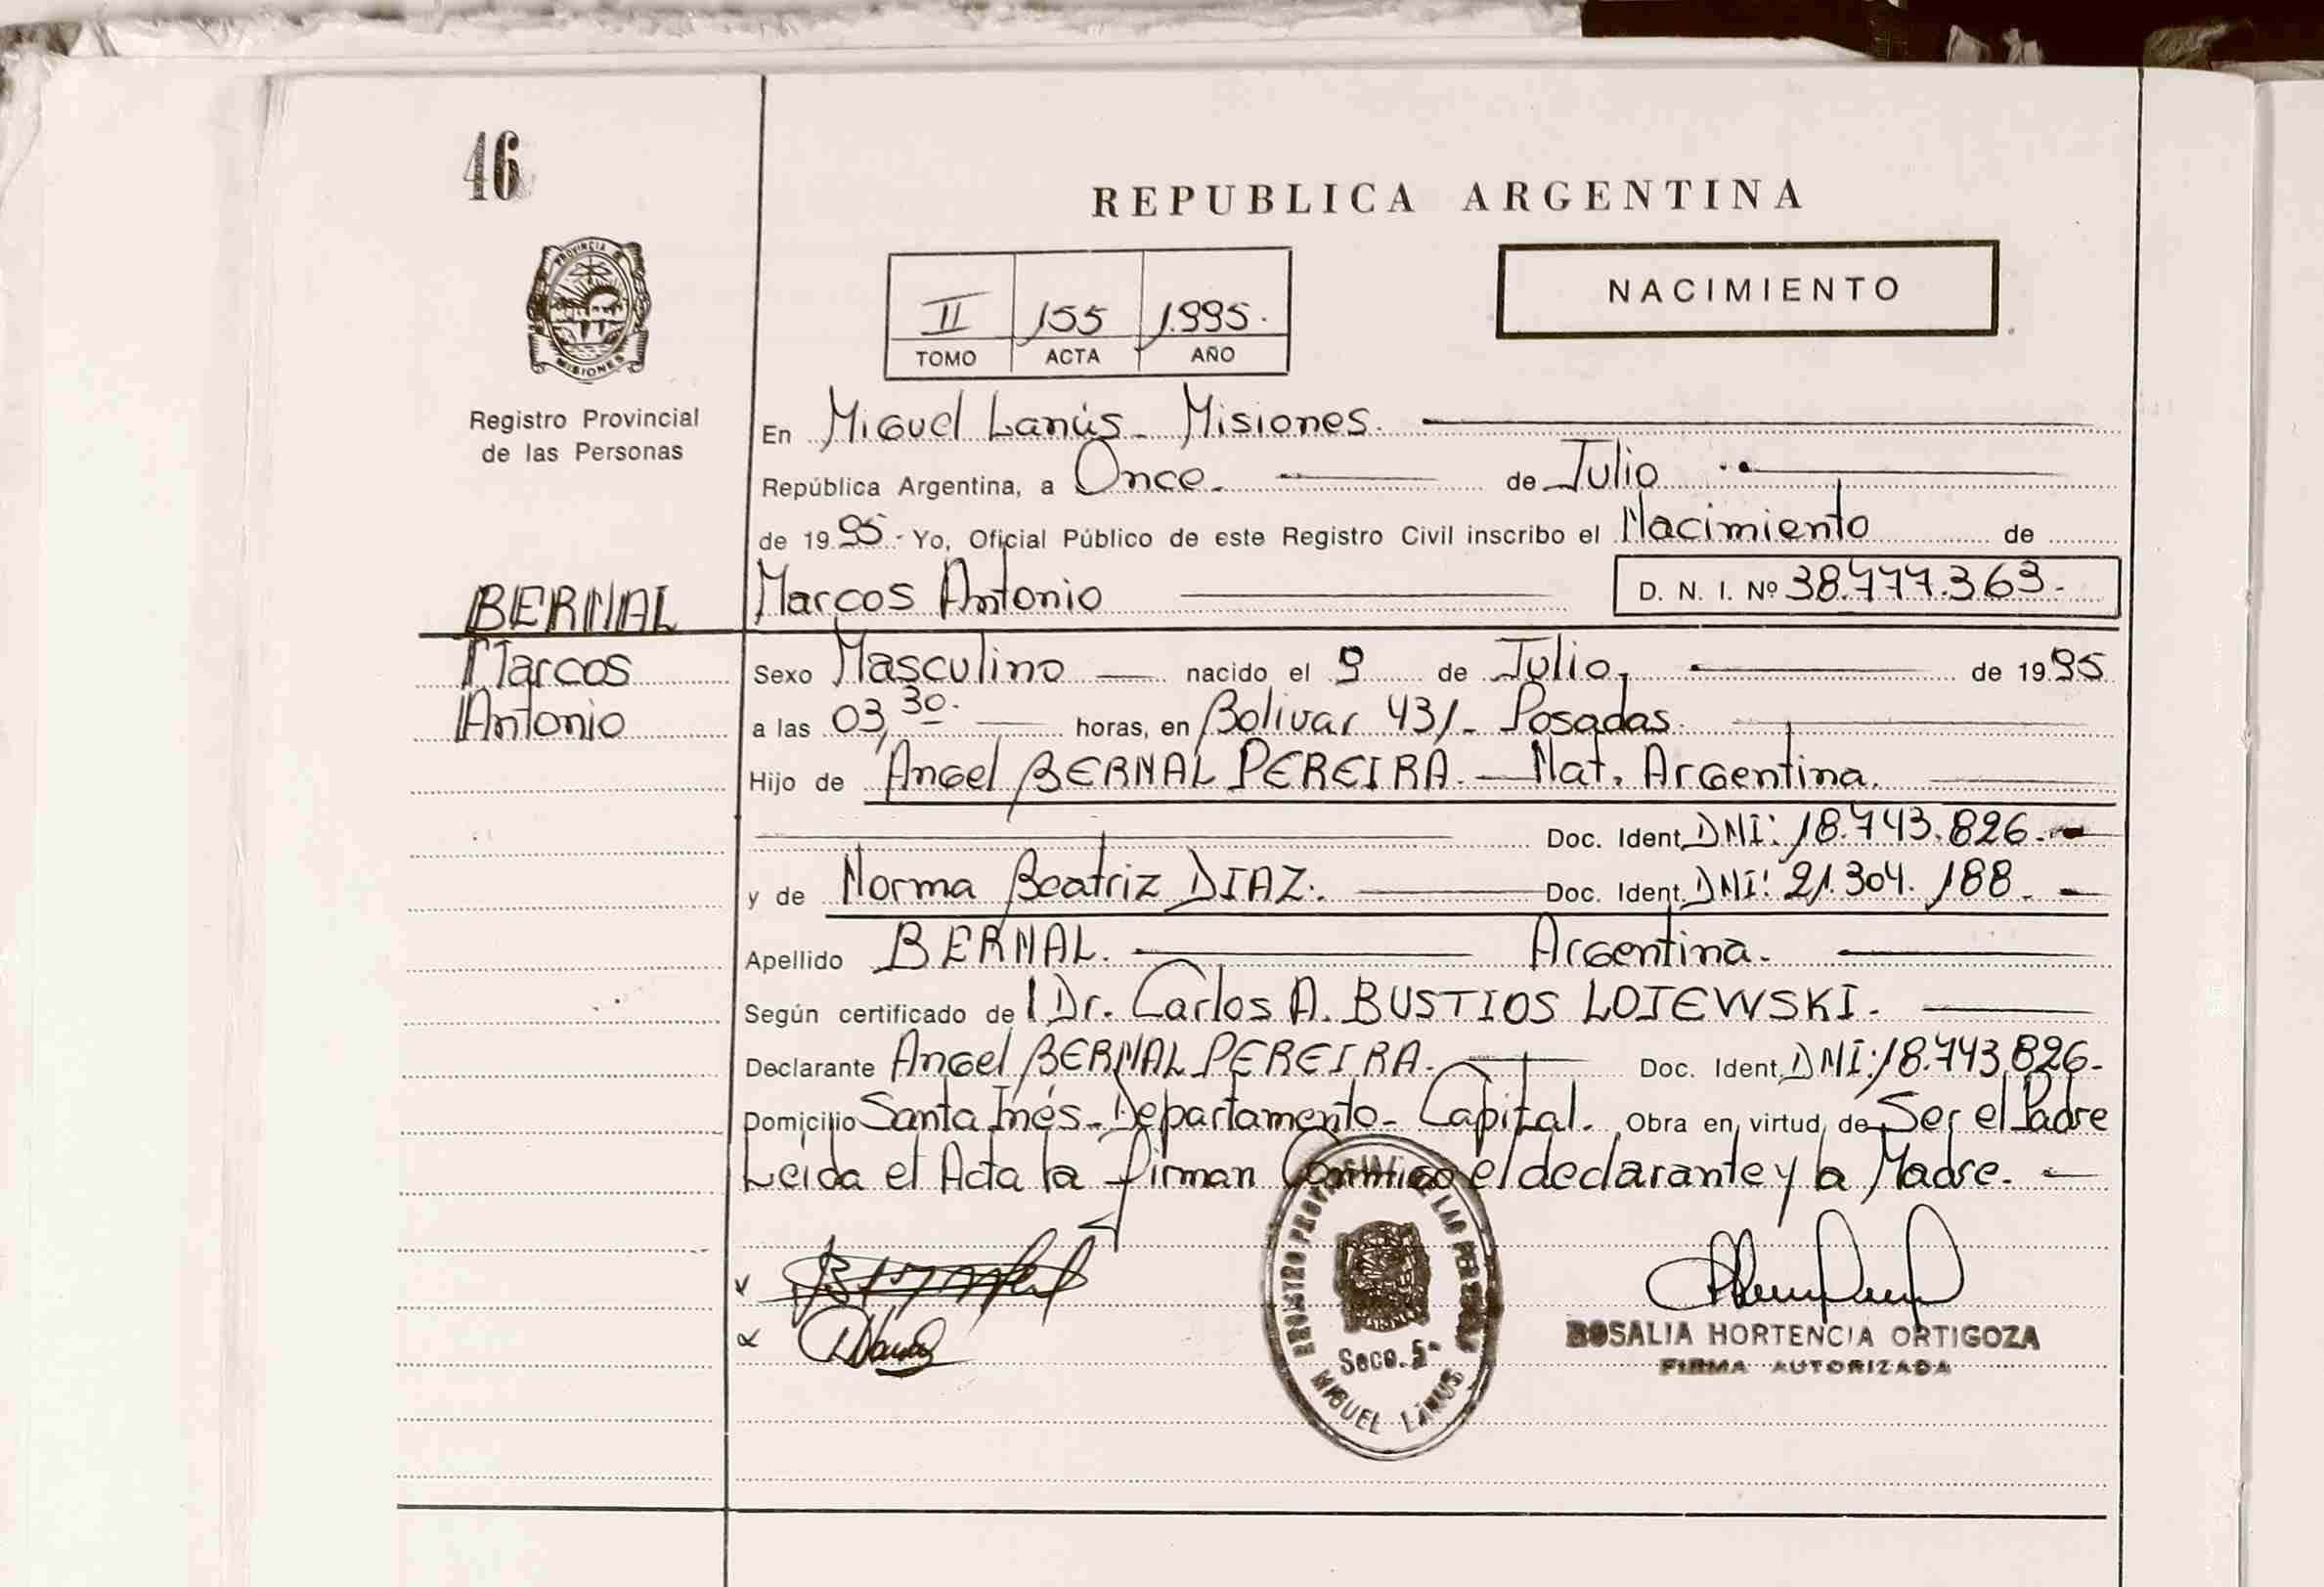 46
REPUBLICA ARGENTINA
PROVINCIA
MISIONES
II 155 1.995.
TOMO ACTA AÑO
NACIMIENTO
Registro Provincial
de las Personas
En Miguel Lanús - Misiones.
República Argentina, a Once. de Julio
de 1995.- Yo, Oficial Público de este Registro Civil inscribo el Nacimiento de
BERNAL Marcos Antonio D. N. I. Nº 38.777.363.-
Marcos Sexo Masculino nacido el 9 de Julio, de 1995
Antonio a las 03,30. horas, en Bolivar 431- Posadas.
Hijo de Angel BERNAL PEREIRA. - Nat. Argentina.
Doc. Ident. DNI: 18.743.826.-
y de Norma Beatriz DIAZ. Doc. Ident. DNI: 21.304.188.-
Apellido BERNAL. Argentina.
Según certificado del Dr. Carlos A. BUSTIOS LOJEWSKI.
Declarante Angel BERNAL PEREIRA. Doc. Ident. DNI: 18.743.826-
Domicilio Santa Inés - Departamento - Capital. Obra en virtud de Ser el Padre
Leida el Acta la firman Conmigo el declarante y la Madre.
REGISTRO PROVINCIAL DE LAS PERSONAS
Secc. 5ª
MIGUEL LANUS
ROSALIA HORTENCIA ORTIGOZA
FIRMA AUTORIZADA